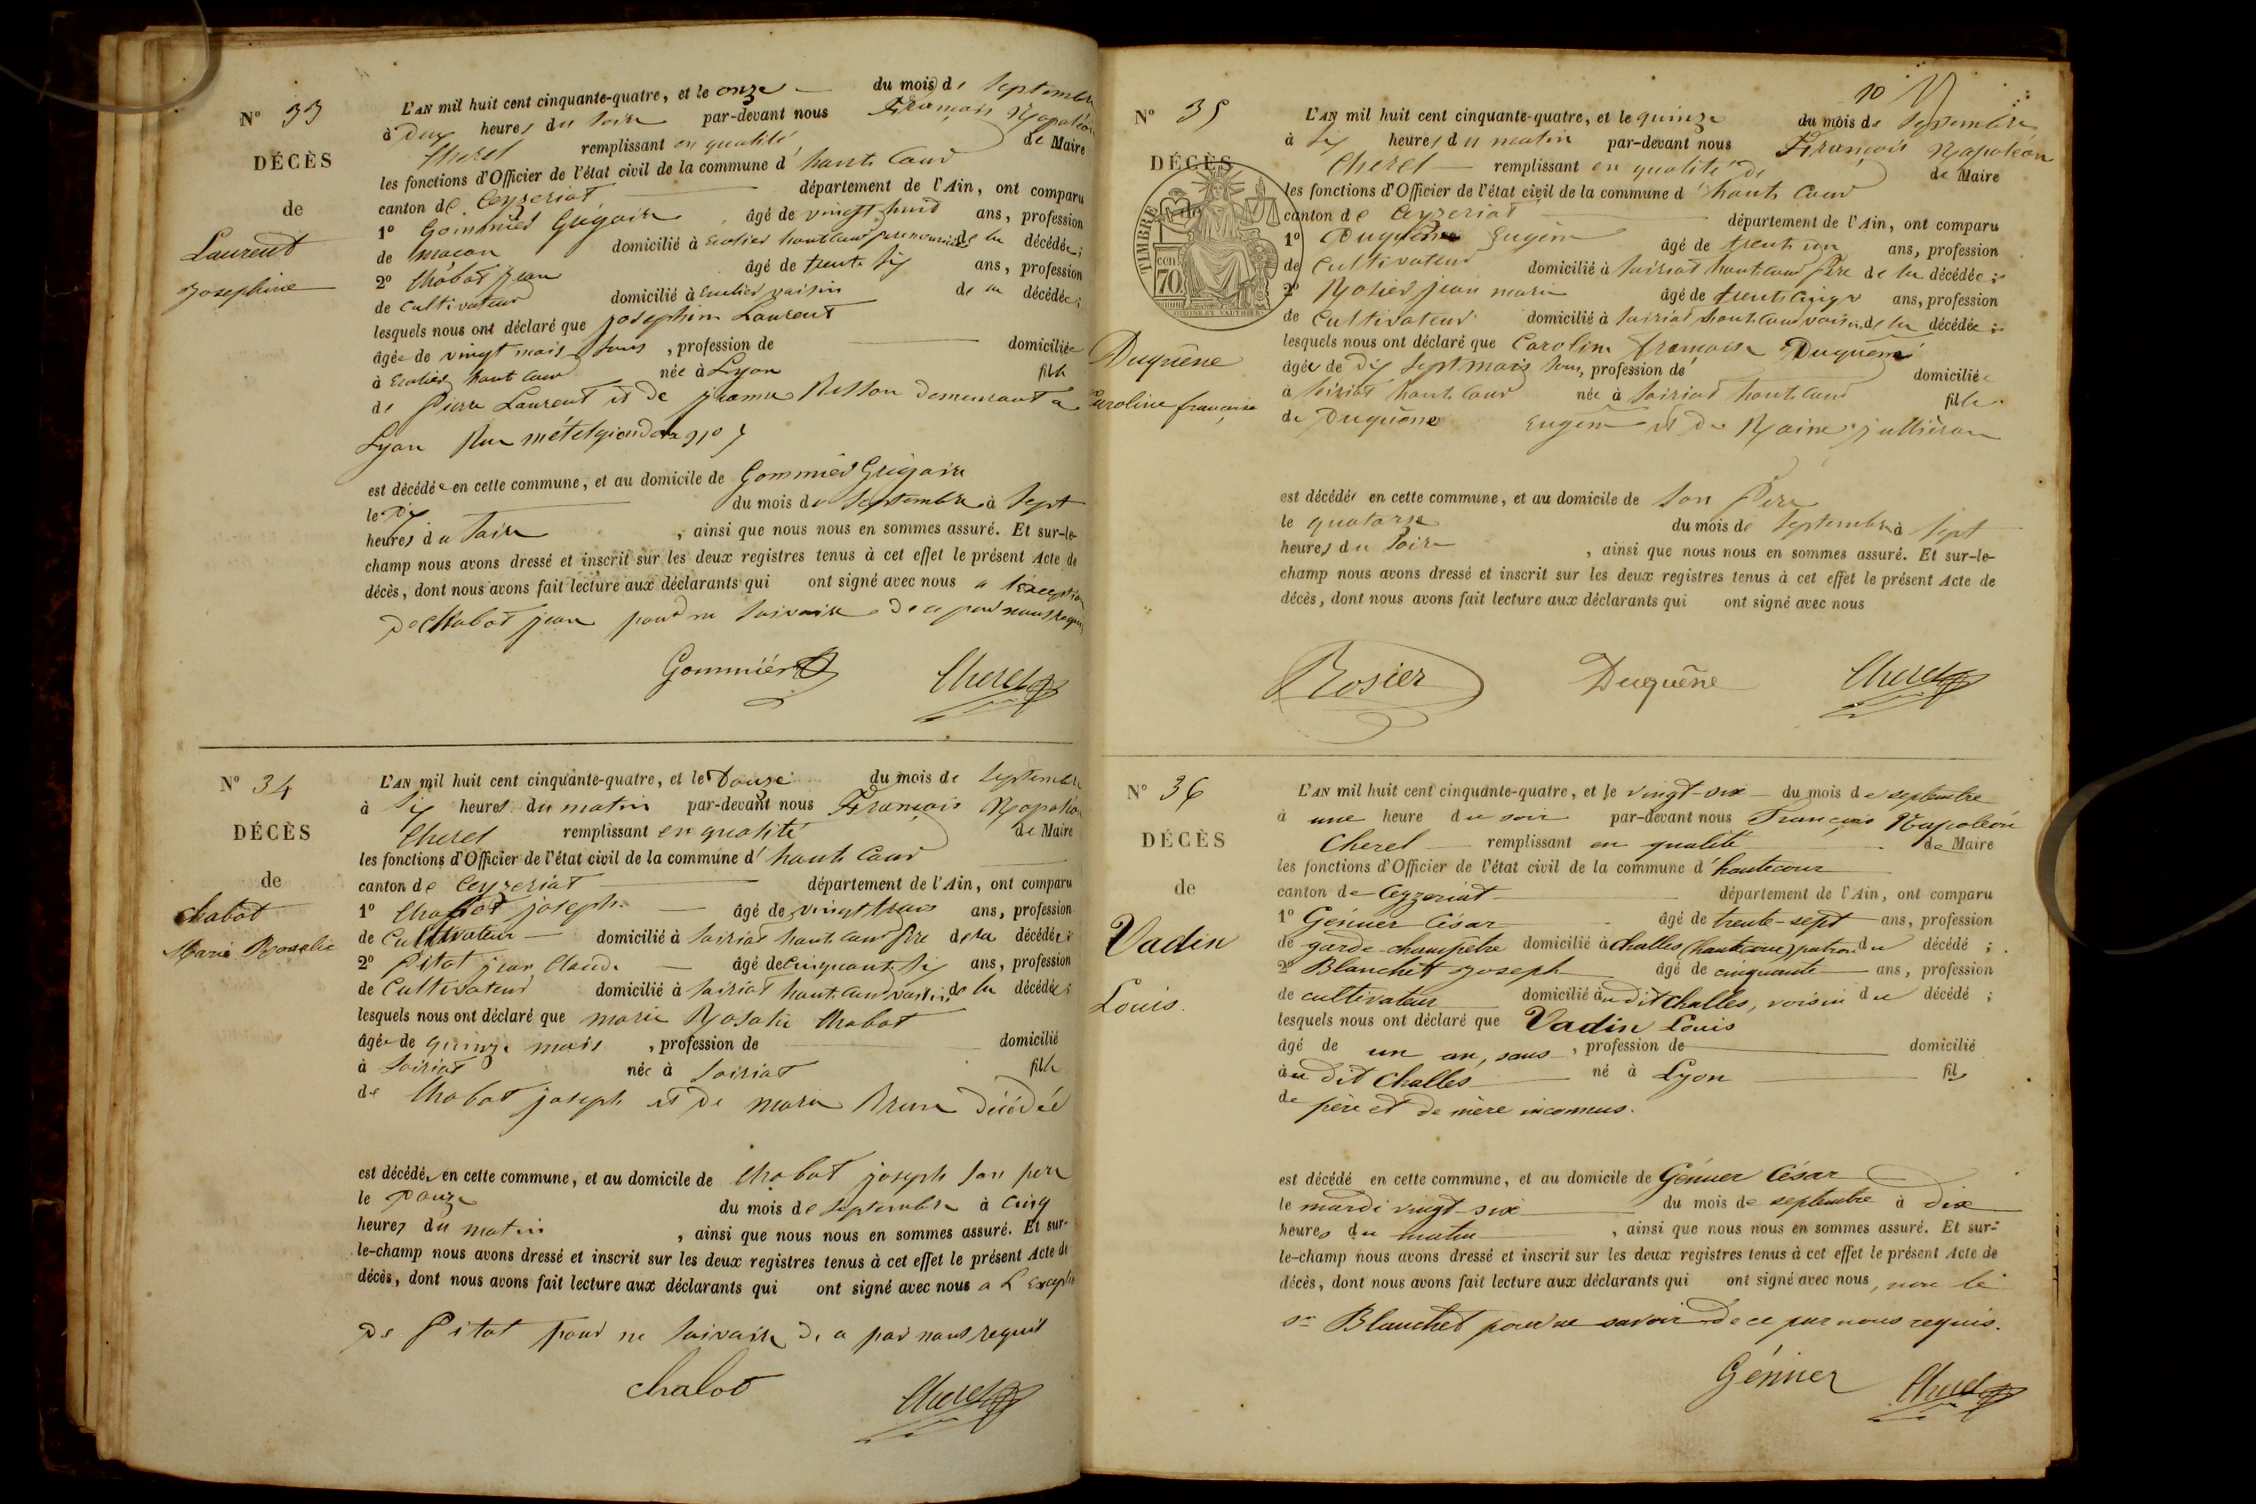 N° 33
DÉCÈS
de
Laurent
Josephine
L'AN mil huit cent cinquante-quatre, et le onze du mois de Septembre
à Dix heures du Soir par-devant nous François Napoléon
Cherel remplissant en qualité de Maire
les fonctions d'Officier de l'état civil de la commune d'haute Cour
canton de Ceyzeriat département de l'Ain, ont comparu
1° Gommier Grégoire âgé de vingt huit ans, profession
de macon domicilié à haute Cour de la décédée;
2° Chabot jean âgé de trente Six ans, profession
de Cultivateur domicilié à voisin de la décédée;
lesquels nous ont déclaré que josephine Laurent
âgée de vingt mois Sans, profession de domiciliée
à haute Cour née à Lyon fille
de Pierre Laurent et de jeanne Besson Demeurant a
Lyon Rue
est décédée en cette commune, et au domicile de Gommier Grégoire
le Dix du mois de Septembre à Sept
heures du Soir, ainsi que nous nous en sommes assuré. Et sur-le-
champ nous avons dressé et inscrit sur les deux registres tenus à cet effet le présent Acte de
décès, dont nous avons fait lecture aux déclarants qui ont signé avec nous a l'exception
De Chabot jean pour ne Savoir De ce par nous Requis
Gommiér Cherel
N° 34
DÉCÈS
de
Chabot
Marie Rosalie
L'AN mil huit cent cinquante-quatre, et le Douze du mois de Septembre
à Six heures du matin par-devant nous François Napoléon
Cherel remplissant en qualité de Maire
les fonctions d'Officier de l'état civil de la commune d'haute Cour
canton de Ceyzeriat département de l'Ain, ont comparu
1° Chabot joseph âgé de vingt trois ans, profession
de Cultivateur domicilié à Soiriat haute Cour Père de la décédée;
2° Pitot jean Claude âgé de Cinquante Six ans, profession
de Cultivateur domicilié à Soiriat haute Cour voisin de la décédée;
lesquels nous ont déclaré que marie Rosalie Chabot
âgée de quinze mois, profession de domicilié
à Soiriat née à Soiriat fille
de Chabot joseph et De marie Brun Décédée
est décédée en cette commune, et au domicile de Chabot joseph Son pere
le Douze du mois de Septembre à Cinq
heures du matin, ainsi que nous nous en sommes assuré. Et sur-
le-champ nous avons dressé et inscrit sur les deux registres tenus à cet effet le présent Acte de
décès, dont nous avons fait lecture aux déclarants qui ont signé avec nous a L'Exception
De Pitot pour ne Savoir De ce par nous requis
chabot Cherel
10
N° 35
DÉCÈS
de
TIMBRE
70
Duquêne
Caroline françoise
L'AN mil huit cent cinquante-quatre, et le quinze du mois de Septembre
à Six heures du matin par-devant nous François Napoléon
Cherel remplissant en qualité de de Maire
les fonctions d'Officier de l'état civil de la commune d'haute Cour
canton de Ceyzeriat département de l'Ain, ont comparu
1° Duquêne Eugène âgé de trente un ans, profession
de Cultivateur domicilié à Soiriat haute Cour Père de la décédée;
2° Rosier jean marie âgé de trente Cinq ans, profession
de Cultivateur domicilié à Soiriat haute Cour voisin de la décédée;
lesquels nous ont déclaré que Caroline françoise Duquêne
âgée de Dix Sept mois Sans, profession de domiciliée
à Soiriat haute Cour née à Soiriat haute Cour fille
de Duquêne Eugène et De
est décédée en cette commune, et au domicile de Son Père
le quatorze du mois de Septembre à Sept
heures du Soir, ainsi que nous nous en sommes assuré. Et sur-le-
champ nous avons dressé et inscrit sur les deux registres tenus à cet effet le présent Acte de
décès, dont nous avons fait lecture aux déclarants qui ont signé avec nous
Rosier Duquêne Cherel
N° 36
DÉCÈS
de
Vadin
Louis.
L'AN mil huit cent cinquante-quatre, et le vingt-six du mois de septembre
à une heure du soir par-devant nous François Napoléon
Cherel remplissant en qualité de Maire
les fonctions d'Officier de l'état civil de la commune d'hautecour
canton de Ceyzeriat département de l'Ain, ont comparu
1° Génier César âgé de trente-sept ans, profession
de garde-champêtre domicilié à Challes (hautecour) patron du décédé;
2° Blanchet Joseph âgé de cinquante ans, profession
de cultivateur domicilié audit Challes, voisin du décédé;
lesquels nous ont déclaré que Vadin Louis
âgé de un an, sans, profession de domicilié
au dit Challes né à Lyon fils
de père et de mère inconnus.
est décédé en cette commune, et au domicile de Génier César
le mardi vingt-six du mois de septembre à dix
heures du matin, ainsi que nous nous en sommes assuré. Et sur-
le-champ nous avons dressé et inscrit sur les deux registres tenus à cet effet le présent Acte de
décès, dont nous avons fait lecture aux déclarants qui ont signé avec nous, non le
sr Blanchet pour ne savoir de ce par nous requis.
Génier Cherel